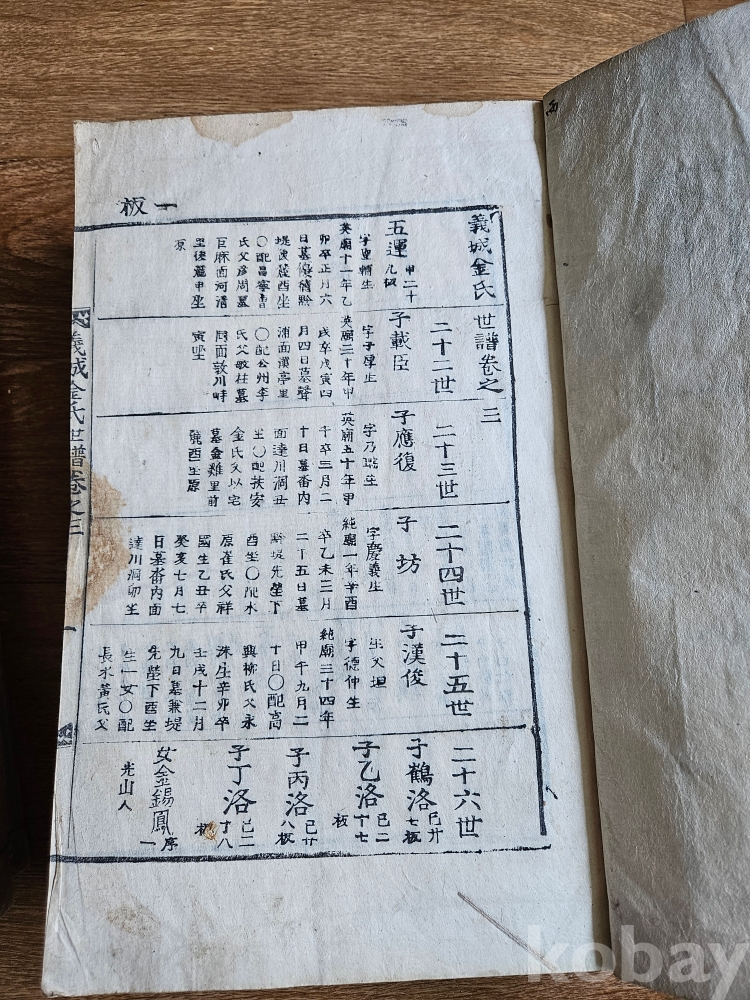 一板
義城金氏世譜卷之三
五運
甲二十
九板
字聖輔生
英廟十一年乙
卯卒正月六
日墓
堤後麓酉坐
〇配昌寧曺
氏父彦周墓
巨麻面河淸
里後麓甲坐
原
二十二世
子載臣
字子厚生
英廟三十年甲
戌卒戊寅四
月四日墓聲
浦面漢亭里
〇配公州李
氏父敏柱墓
同面敦川畔
寅坐
二十三世
子應復
字乃瑞生
英廟五十年甲
午卒三月二
十日墓畓內
面達川洞丑
坐〇配扶安
金氏父以宅
墓金雞里前
麓酉坐原
二十四世
子坊
字慶義生
純廟一年辛酉
卒乙未三月
二十五日墓
黔堤先塋下
酉坐〇配水
原崔氏父祥
國生乙丑卒
癸亥七月七
日墓畓內面
達川洞卯坐
二十五世
子漢俊
生父坦
字德仲生
純廟三十四年
甲午九月二
十日〇配高
興柳氏父永
洙生辛卯卒
壬戌十二月
九日墓兼堤
先塋下酉坐
生一女〇配
長水黃氏父
二十六世
子鶴洛
巳廿
七板
子乙洛
巳二
十七
板
子丙洛
巳廿
八板
子丁洛
巳二
十八
板
女金錫鳳
序一
光山人
義城金氏世譜卷之三
一
kobay